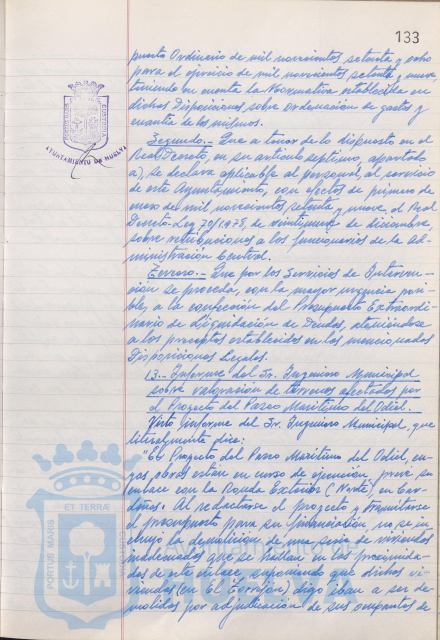 133
puesto Ordinario de mil novecientos setenta y ocho
para el ejercicio de mil novecientos setenta y nueve,
teniendo en cuenta la Normativa establecida en
dichas Disposiciones sobre ordenación de gastos y
cuantía de los mismos.
Segundo.- Que a tenor de lo dispuesto en el
Real Decreto, en su artículo septimo, apartado
a), se declara aplicable al personal al servicio
de este Ayuntamiento, con efectos de primero de
enero de mil novecientos setenta y nueve, el Real
Decreto-Ley 70/1978, de veintinueve de diciembre,
sobre retribuciones a los funcionarios de la Ad-
ministración Central.
Tercero.- Que por los Servicios de Interven-
ción se proceda, con la mayor urgencia posi-
ble, a la confección del Presupuesto Extraordi-
nario de Liquidación de Deudas, ateniendose
a los preceptos establecidos en las mencionadas
Disposiciones Legales.
13.- Informe del Sr. Ingeniero Municipal
sobre valoración de terrenos afectados por
el Proyecto del Paseo Maritimo del Odiel.
Visto informe del Sr. Ingeniero Municipal, que
literalmente dice:
"El Proyecto del Paseo Maritimo del Odiel cu-
yas obras estan en curso de ejecución preve su
enlace con la Ronda Exterior (Norte), en Car-
deñas. Al redactarse el proyecto y tramitarse
el presupuesto para su financiación no se in-
cluyo la demolición de una serie de viviendas
que se hallan en las proximida-
des de este enlace suponiendo que dichas vi-
viendas (en El Torrejón) digo iban a ser de-
molidas por adjudicación de sus ocupantes de
PORTUS MARIS
ET TERRAE
CUSTODIA
AYUNTAMIENTO DE HUELVA
PORTUS MARIS
ET TERRAE
CUSTODIA